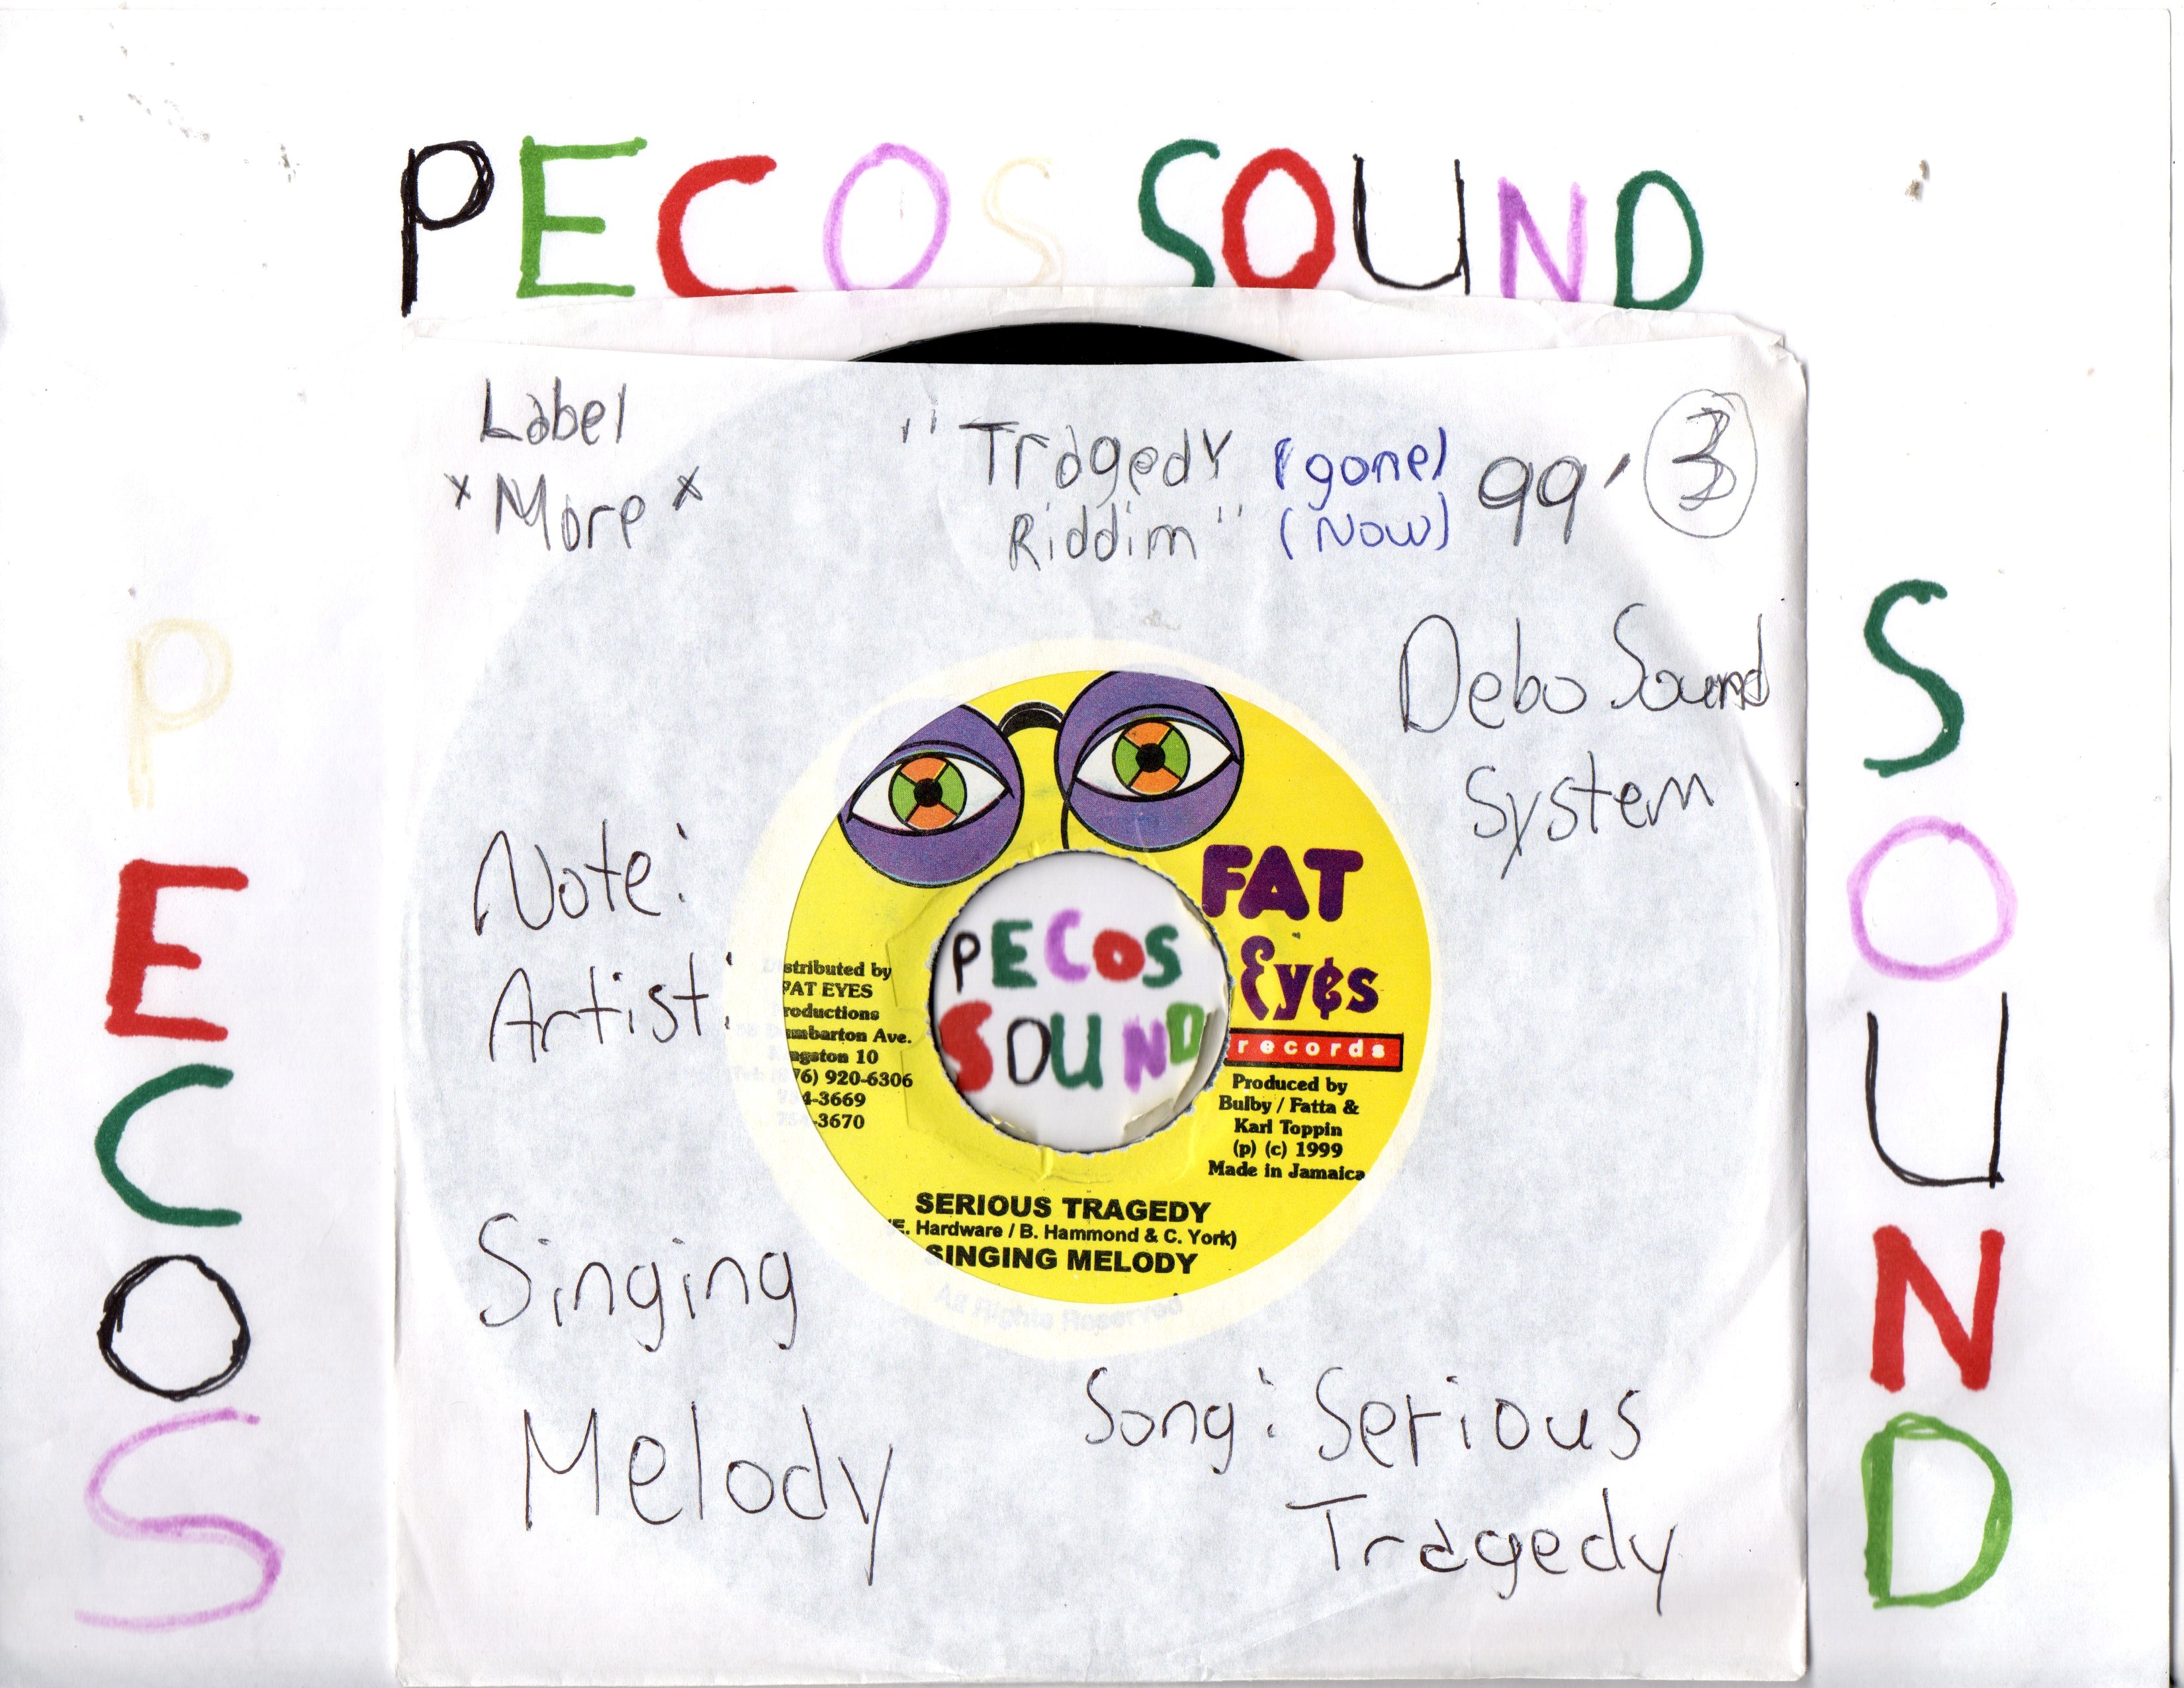 PECOS SOUND
Label
*More*
"Tragedy (gone) 99' 3
Riddim" (Now)
Debo Sound
System
PECOS
SOUND
Note:
Artist:
Singing
Melody
FAT
Eyes
records
stributed by
FAT EYES
roductions
mbarton Ave.
ngston 10
76) 920-6306
4-3669
-3670
PECOS
SOUND
Produced by
Bulby / Fatta &
Karl Toppin
(p) (c) 1999
Made in Jamaica
SERIOUS TRAGEDY
(E. Hardware / B. Hammond & C. York)
SINGING MELODY
All Rights Reserved
Song: Serious
Tragedy